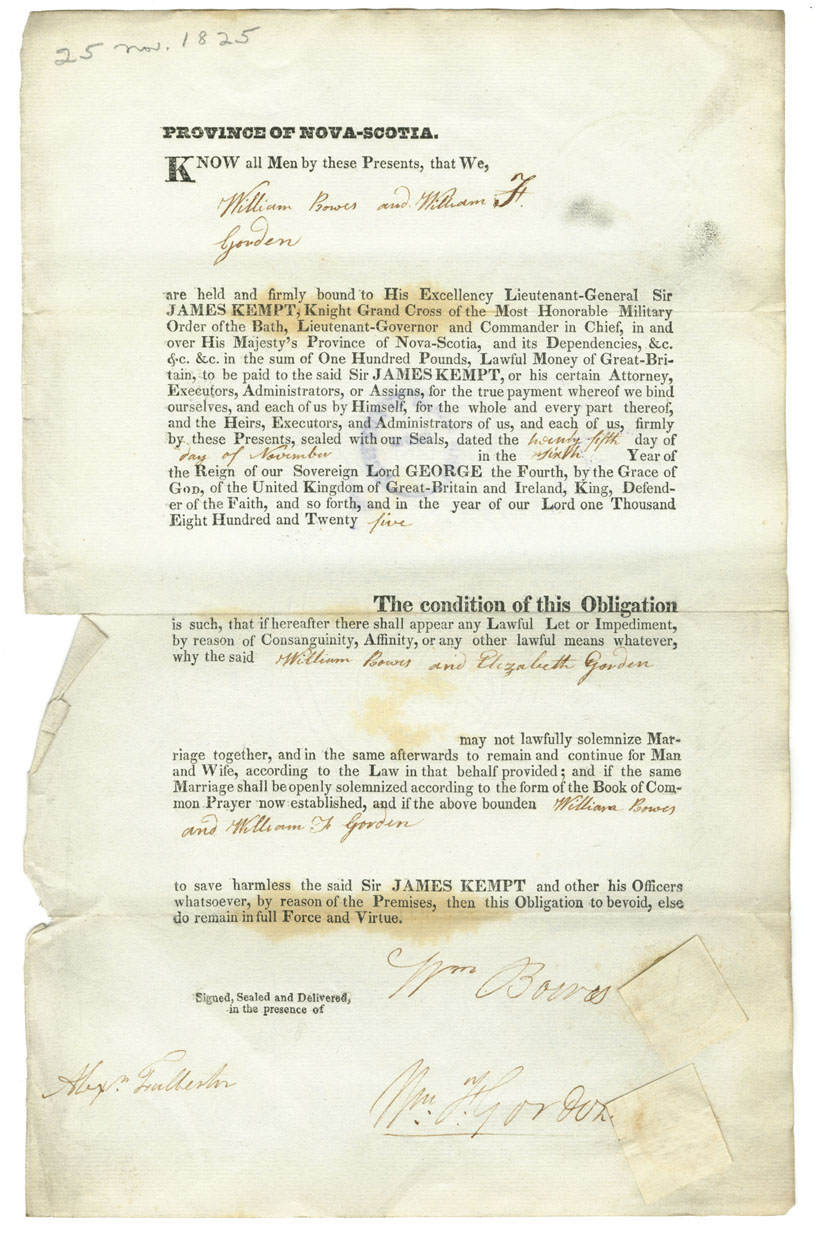 25 nov. 1825
PROVINCE OF NOVA-SCOTIA.
KNOW all Men by these Presents, that We,
William Bowes and William F.
Gorden
are held and firmly bound to His Excellency Lieutenant-General Sir
JAMES KEMPT, Knight Grand Cross of the Most Honorable Military
Order of the Bath, Lieutenant-Governor and Commander in Chief, in and
over His Majesty's Province of Nova-Scotia, and its Dependencies, &c.
&c. &c. in the sum of One Hundred Pounds, Lawful Money of Great-Bri-
tain, to be paid to the said Sir JAMES KEMPT, or his certain Attorney,
Executors, Administrators, or Assigns, for the true payment whereof we bind
ourselves, and each of us by Himself, for the whole and every part thereof,
and the Heirs, Executors, and Administrators of us, and each of us, firmly
by these Presents, sealed with our Seals, dated the twenty fifth day of
day of November in the sixth Year of
the Reign of our Sovereign Lord GEORGE the Fourth, by the Grace of
GOD, of the United Kingdom of Great-Britain and Ireland, King, Defend-
er of the Faith, and so forth, and in the year of our Lord one Thousand
Eight Hundred and Twenty five
The condition of this Obligation
is such, that if hereafter there shall appear any Lawful Let or Impediment,
by reason of Consanguinity, Affinity, or any other lawful means whatever,
why the said William Bowes and Elizabeth Gorden
may not lawfully solemnize Mar-
riage together, and in the same afterwards to remain and continue for Man
and Wife, according to the Law in that behalf provided; and if the same
Marriage shall be openly solemnized according to the form of the Book of Com-
mon Prayer now established, and if the above bounden William Bowes
and William F Gorden
to save harmless the said Sir JAMES KEMPT and other his Officers
whatsoever, by reason of the Premises, then this Obligation to be void, else
do remain in full Force and Virtue.
Wm Bowes
Signed, Sealed and Delivered,
in the presence of
Alexr Fullerton
Wm. F. Gordon.